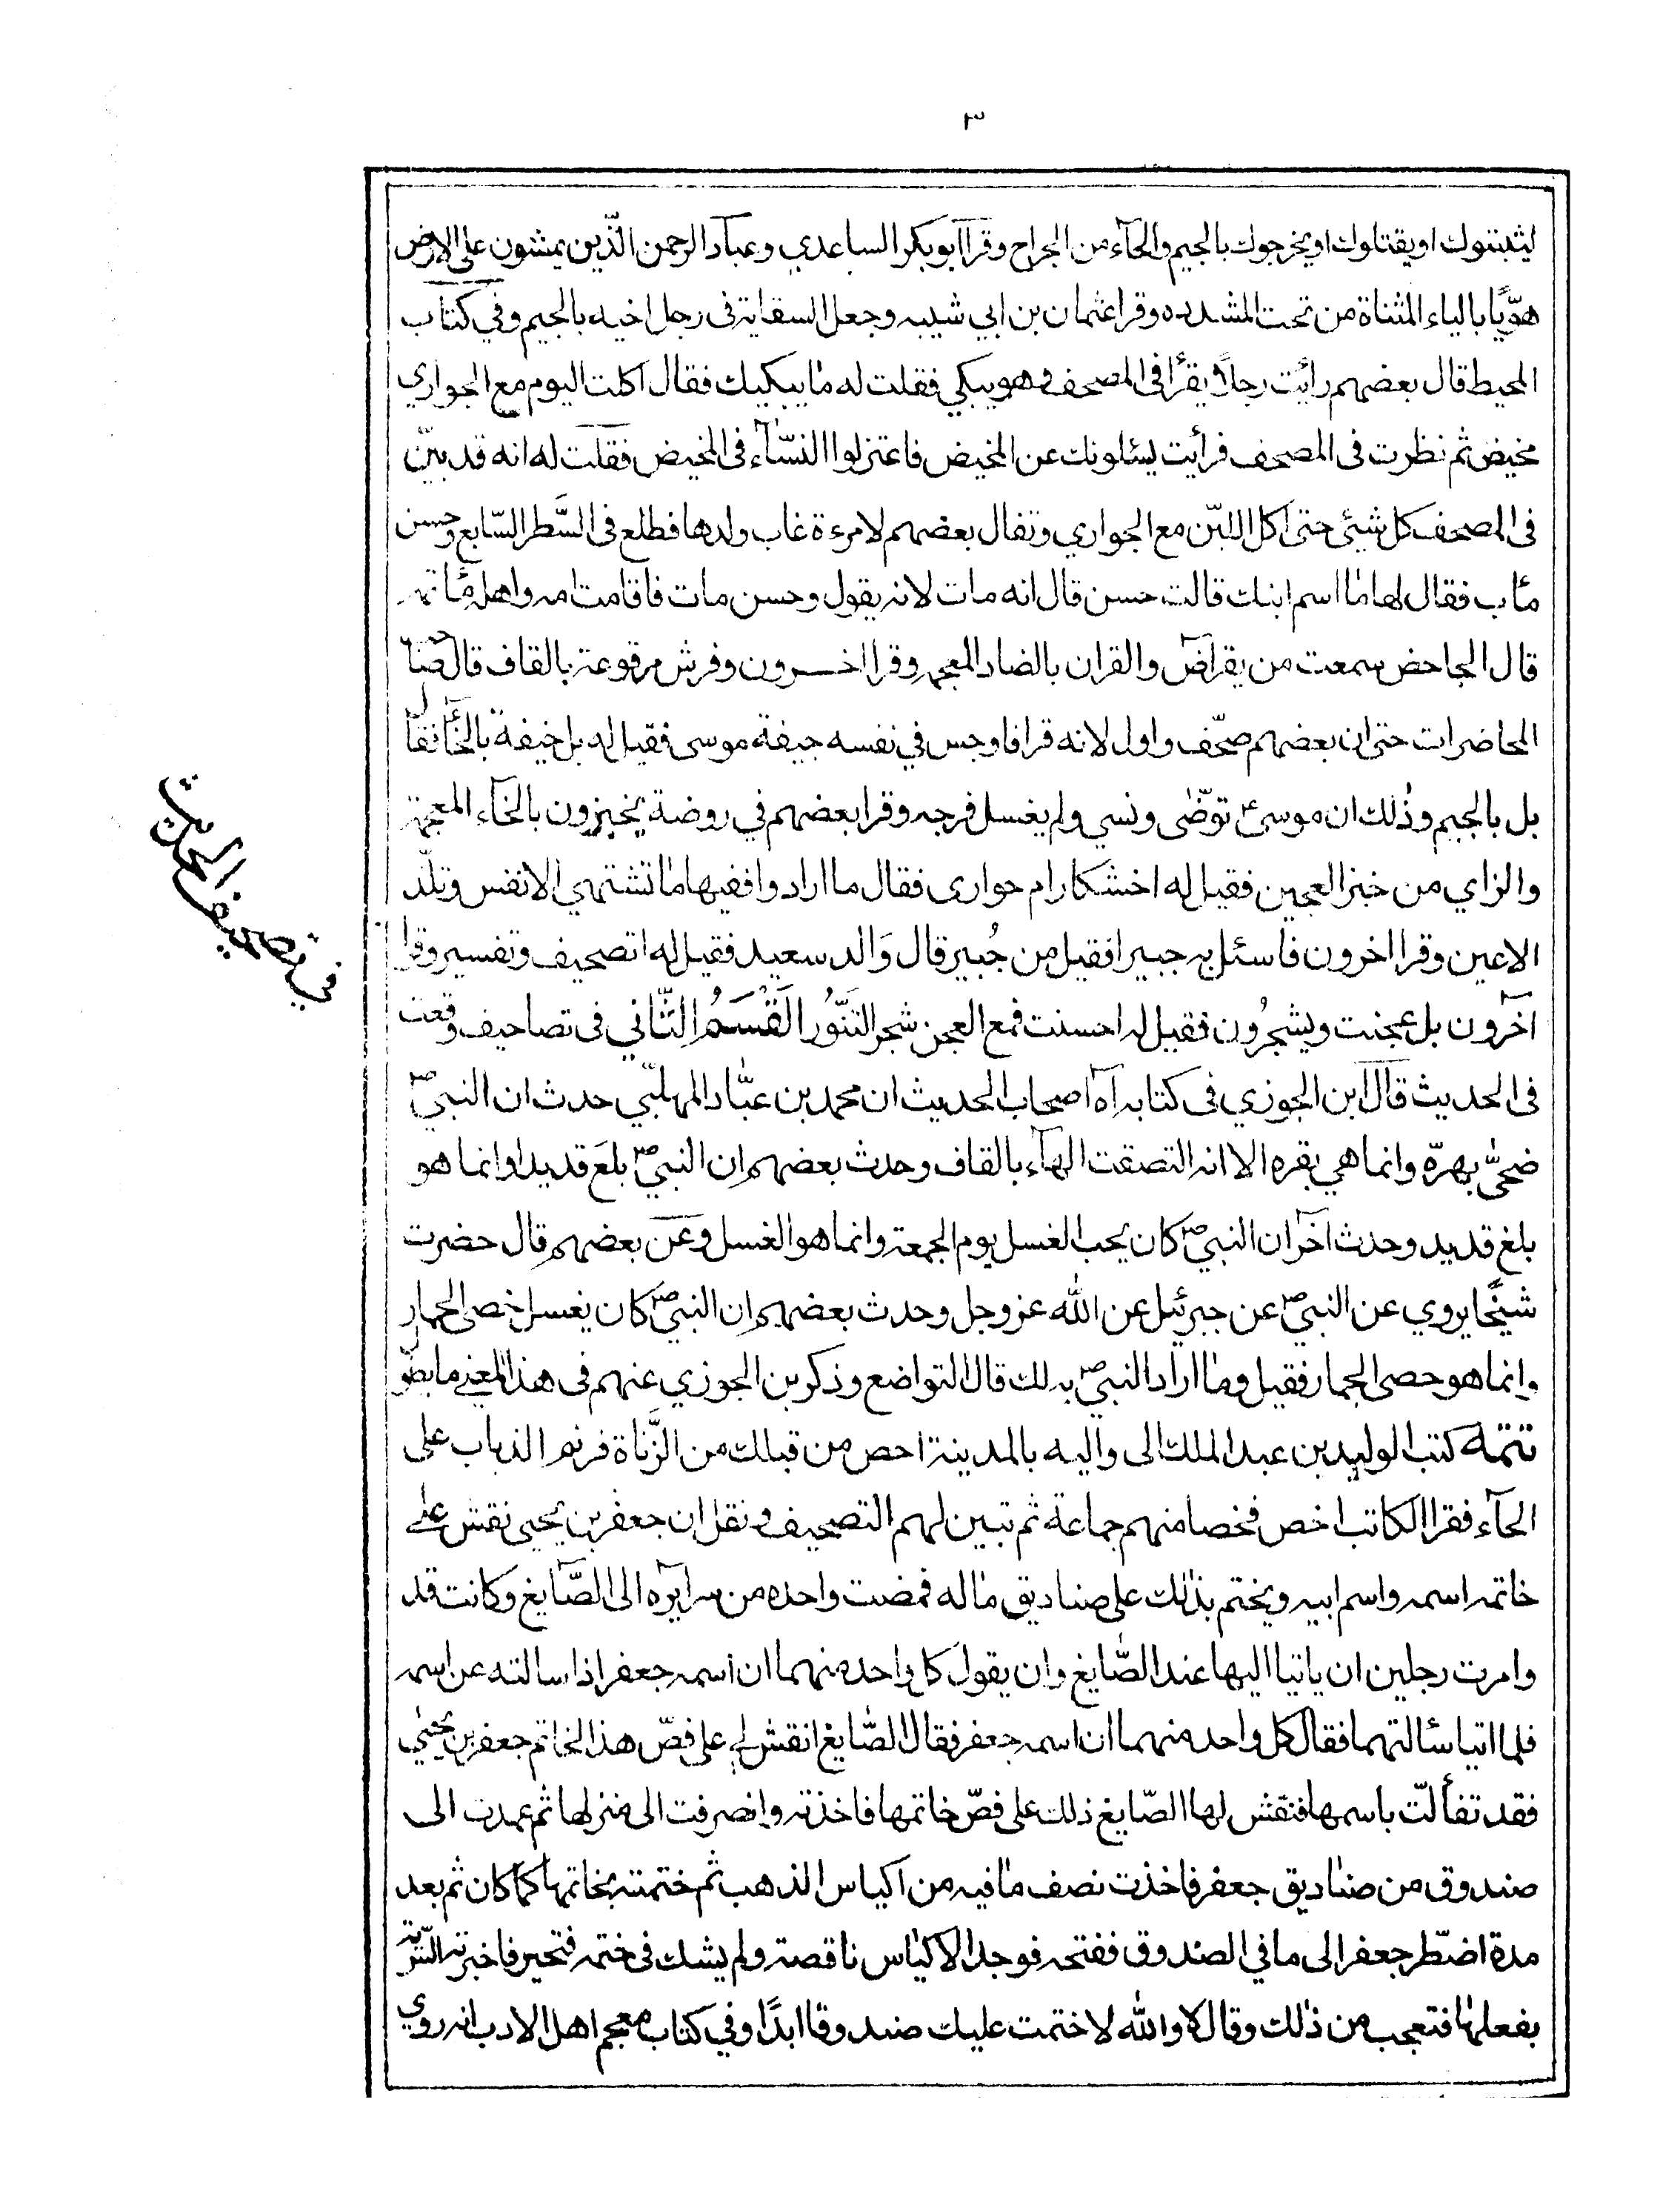 ٣
ليثبتوك او يقتلوك او يخرجوك بالجيم والحآء من الجراح وقرا ابو بكر الساعدي وعباد الرحمن الّذين يمشون على الارض
هوّيًا بالياء المثناة من تحت المشدده وقرا عثمان بن ابي شيبه وجعل السقاية فى رجل اخيه بالجيم وفي كتاب
المحيط قال بعضهم رائت رجلاً يقرأ فى المصحف وهو يبكي فقلت له ما يبكيك فقال اكلت اليوم مع الجواري
مخيض ثم نظرت فى المصحف فرأيت يسٔلونك عن المخيض فاعتزلوا النسّآء فى المخيض فقلت له انه قد بيّن
فى المصحف كل شيئ حتى اكل اللبّن مع الجواري وتفال بعضهم لامرءة غاب ولدها فطلع فى السَّطر السّابع وحسن
مأب فقال لها ما اسم ابنك قالت حسن قال انه مات لانه يقول وحسن مات فاقامت امه واهله مأتمه
قال الجاحض سمعت من يقرا ضٓ والقران بالضاد المعجمه وقرا اخرون وفرش مرقوعة بالقاف قال صاحب
المحاضرات حتى ان بعضهم صحّف واول لانه قرا فاوجس في نفسه جيفة موسى فقيل له بل خيفة بالخآء فقال
بل بالجيم وذلك ان موسى ع توضّى ونسي ولم يغسل فرجه وقرا بعضهم في روضة يخبزون بالخآء المعجمة
والزاي من خبز العجين فقيل له اخشكار ام حوارى فقال ما ارادوا ففيها ما تشتهي الانفس وتلذّ
الاعين وقرا اخرون فاسئل به جبيرا فقيل من جُبير قال وَالد سعيد فقيل له اتصحيف وتفسير وقرا
آخرون بل عجنت ويشجرُون فقيل له احسنت فمع العجن شجر التنّوُر القَسَمُ الثّاني فى تصاحيف وقعت
فى الحديث قال ابن الجوزي فى كتابه آه اصحاب الحديث ان محمد بن عبّاد المهلبّي حدث ان النبيّ ص
ضحىّ بهرّه وانما هي بقره الا انه التصقت الهآء بالقاف وحدث بعضهم ان النبيّ ص بلعَ قديدا وانما هو
بلغ قديد وحدث آخر ان النبيّ ص كان يحب الغسل يوم الجمعة وانما هو الغسل وعَن بعضهم قال حضرت
شيخًا يروي عن النبيّ ص عن جبرئيل عن الله عز وجل وحدث بعضهم ان النبيّ ص كان يغسل خصى الحمار
وانما هو حصى الجمار فقيل وما اراد النبيّ ص بذلك قال التواضع وذكر بن الجوزي عنهم فى هذا المعنى ما يطول
تتمه كتب الوليد بن عبد الملك الى واليه بالمدينة احص من قبلك من الزّناة فرنم الذباب على
الحآء فقرا الكاتب اخص فخصا منهم جماعة ثم تبين لهم التصحيف ونقل ان جعفر بن يحيى نقش على
خاتمه اسمه واسم ابيه ويختم بذلك على صناديق ماله فمضت واحده من سرايره الى الصّآيغ وكانت قد
وامرت رجلين ان ياتيا اليها عند الصّايغ وان يقول كل واحد منهما ان اسمه جعفر اذا سالته عن اسمه
فلما اتيا سئالتهما فقال كل واحد منهما ان اسمه جعفر فقال الصّايغ انقش لي على فصّ هذا الخاتم جعفر بن يحيى
فقد تفألتّ باسمها فنقش لها الصّايغ ذلك على فصّ خاتمها فاخذته وانصرفت الى منزلها ثم عمدت الى
صندوق من صناديق جعفر فاخذت نصف ما فيه من اكياس الذهب ثم ختمته بخاتمها كما كان ثم بعد
مدة اضطّر جعفر الى ما في الصندوق ففتحه فوجد الاكياس ناقصة ولم يشك فى ختمه فتحير فاخبرته السّرّية
بفعلها فتعجب من ذلك وقال لا والله لا ختمت عليك صندوقا ابدًا وفي كتاب معجم اهل الادب انه روي
في تصحيف الحديث